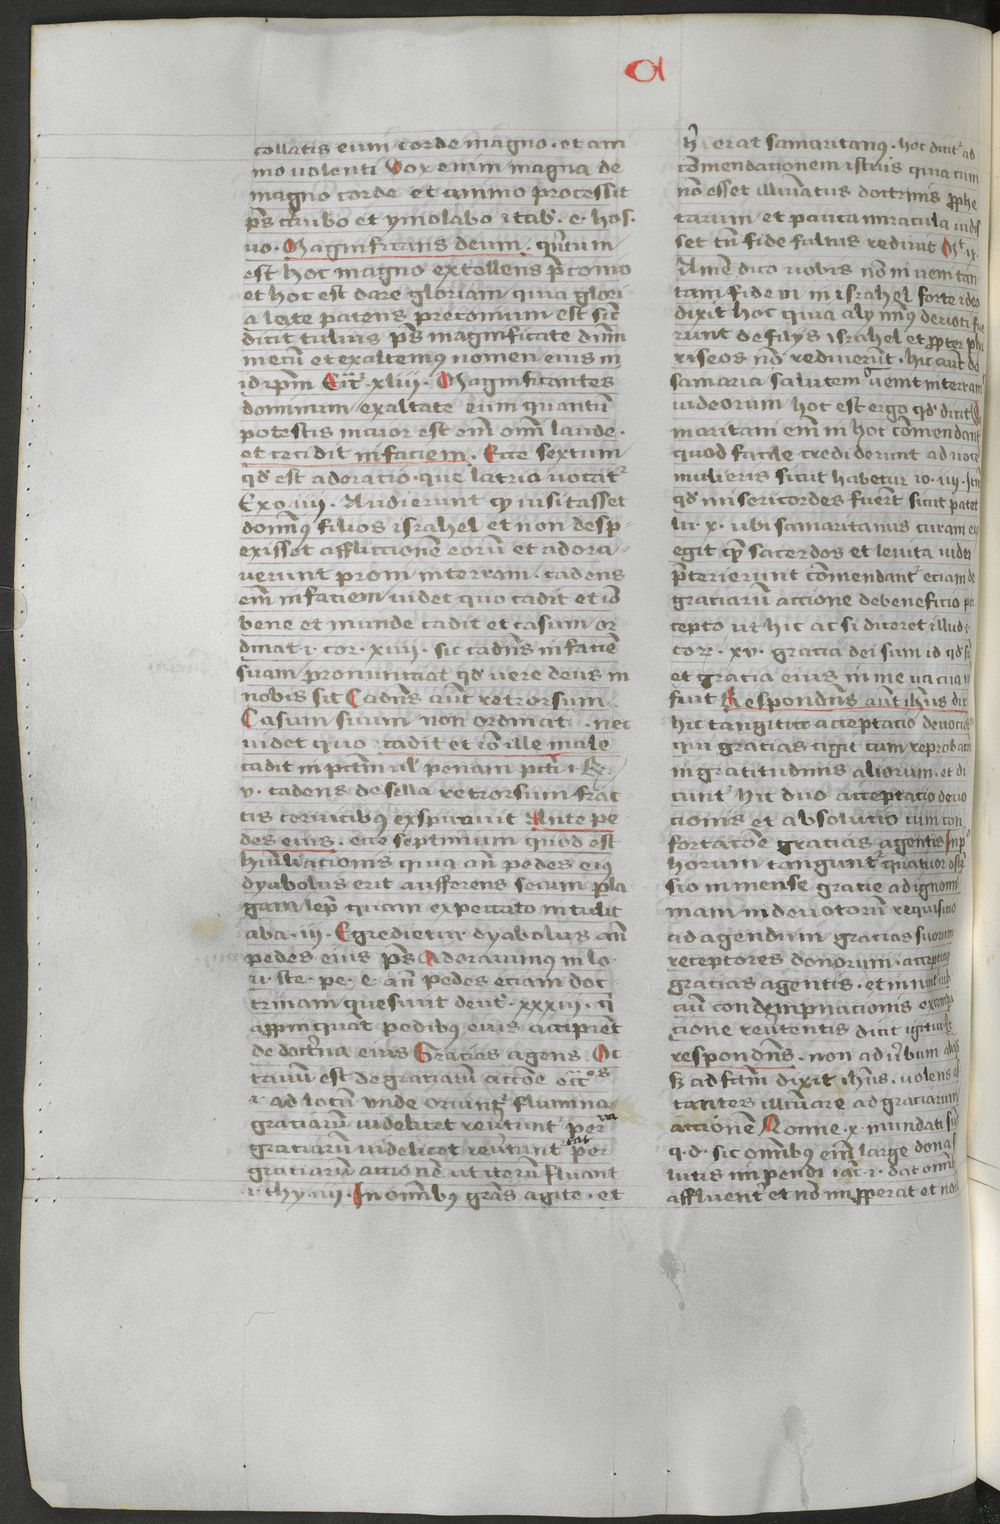 a
collatis eum corde magno · et ani
mo volenti Vox enim magna de
magno corde et animo processit
p̄s cantabo et ymolabo i tab · e · hos ·
uo · Magnificans deum · q̄rtum
est hoc magno extollens p̄conio
et hoc est dare gloriam quia glori
a late patens preconium est sic̄
dicit tulius p̄s magnificate dn̄m
mecū et exaltemꝰ nomen eius in
id ip̄m Ecc̄i xliii · Magnificantes
dominum exaltate eum quantū
potestis maior est em̄ om̄i laude ·
et cecidit in faciem · Ecce sextum
qd̄ est adoracio · que latria uocat᷑
Exo · iiii · Audierunt qꝫ uisitasset
dominꝰ filios israhel et non desp-
exisset affliccionē eorū et adora-
uerunt proni in terram · cadens
em̄ in faciem uidet quo cadit et iō
bene et munde cadit et casum or-
dinat i · cor · xiiii · sic cadn̄s in faciē
suam pronunciat qd̄ uere deus in
nobis sit Cadn̄s aūt retrorsum
Casum suum non ordinat · nec
uidet quo cadit et iō ille male
cadit in pctm̄ ul̄ penam pcti i · Re
v · cadens de sella retrorsum frac
tis ceruicibꝰ exspirauit Ante pe
des eius · ecce septimum quod est
humiliacionis quia an̄ pedes eiꝰ
dyabolus erit aufferens secum pla
gam lep̄ quam ex peccato intulit
aba · iii · Egredietur dyabolus an̄
pedes eius p̄s Adorauimꝰ in lo ·
u · ste · pe · e · an̄ pedes eciam doc
trinam que sunt deut̄ · xxxiii · q̄
app̄inquat pedibꝰ eius accipiēt
de doct̄na eius Gracias agens · Oc
tauū est de graciarū acc̄oe
i · ad locū unde oriunt᷑ flumina
graciarū uidelicet reūtunt᷑ per
graciarū uidelicet reūtunt᷑ per
graciarū accionē ut iterū fluant
i · thy · iiii · In om̄ibꝰ gr̄as agite · et
h̄ erat samaritanꝰ · hoc dicit᷑ ad
cōmendacionem istius quia cum
nō esset illūiatus doctrinis ꝓphe
tarum et pauca miracula uidis
set tn̄ fide saluus rediuit Mt̄ ix
Amē dico uobis nō inueni tan
tam fidem in israhel forte ideo
dixit hoc quia alij minꝰ deuoti fue
runt de filijs israhel et ꝓpter pha
riseos nō redierūt · hic aūt de
samaria salutem uenit in terram
iudeorum hoc est ergo qd̄ dicit Sa
maritani em̄ in hoc cōmendant
quod facile crediderunt ad uocē
mulieris sicut habetur io · iiii · Itē
qd̄ misericordes fuer̄t sicut patet
lu · x · ubi samaritanus curam eiꝰ
egit cum sacerdos et leuita uiden
p̄terierunt cōmendant᷑ eciam de
graciarū accione de beneficio per
cepto ut hic ac si diceret illud i
cor · xv · gracia dei sum id qd̄ sū
et gracia eius in me uacua n̄
fuit Respondn̄s aūt ih̄us dix̄
hic tangitur acceptacio deuocionis
qui gracias agit cum reprobacōe
ingratitudinis aliorum · et di
cunt᷑ hic duo acceptacio deuo
cionis et absolucio cum con
fortacōe gracias agentis Imp̄
horum tangunt᷑ quatuor
sio inmense gracie ad ignomi
niam indeuotorū requisicio
ad agendum gracias suorum
receptores donorum · acceptacio
gracias agentis · et
cim condempnacionis
cione reūtentis dicit igitur Re
respondn̄s · non ad v̄bum
sꝫ ad fc̄m dixit ih̄us · uolens al
tantes illūiare ad graciarum
accionē Nonne · x · mundati st̄
q · d · sic om̄ibꝰ em̄ large dona sa
lutis impendi iac̄ · i · dat om̄ibꝰ
affluent̄ et nō imꝓperat et non